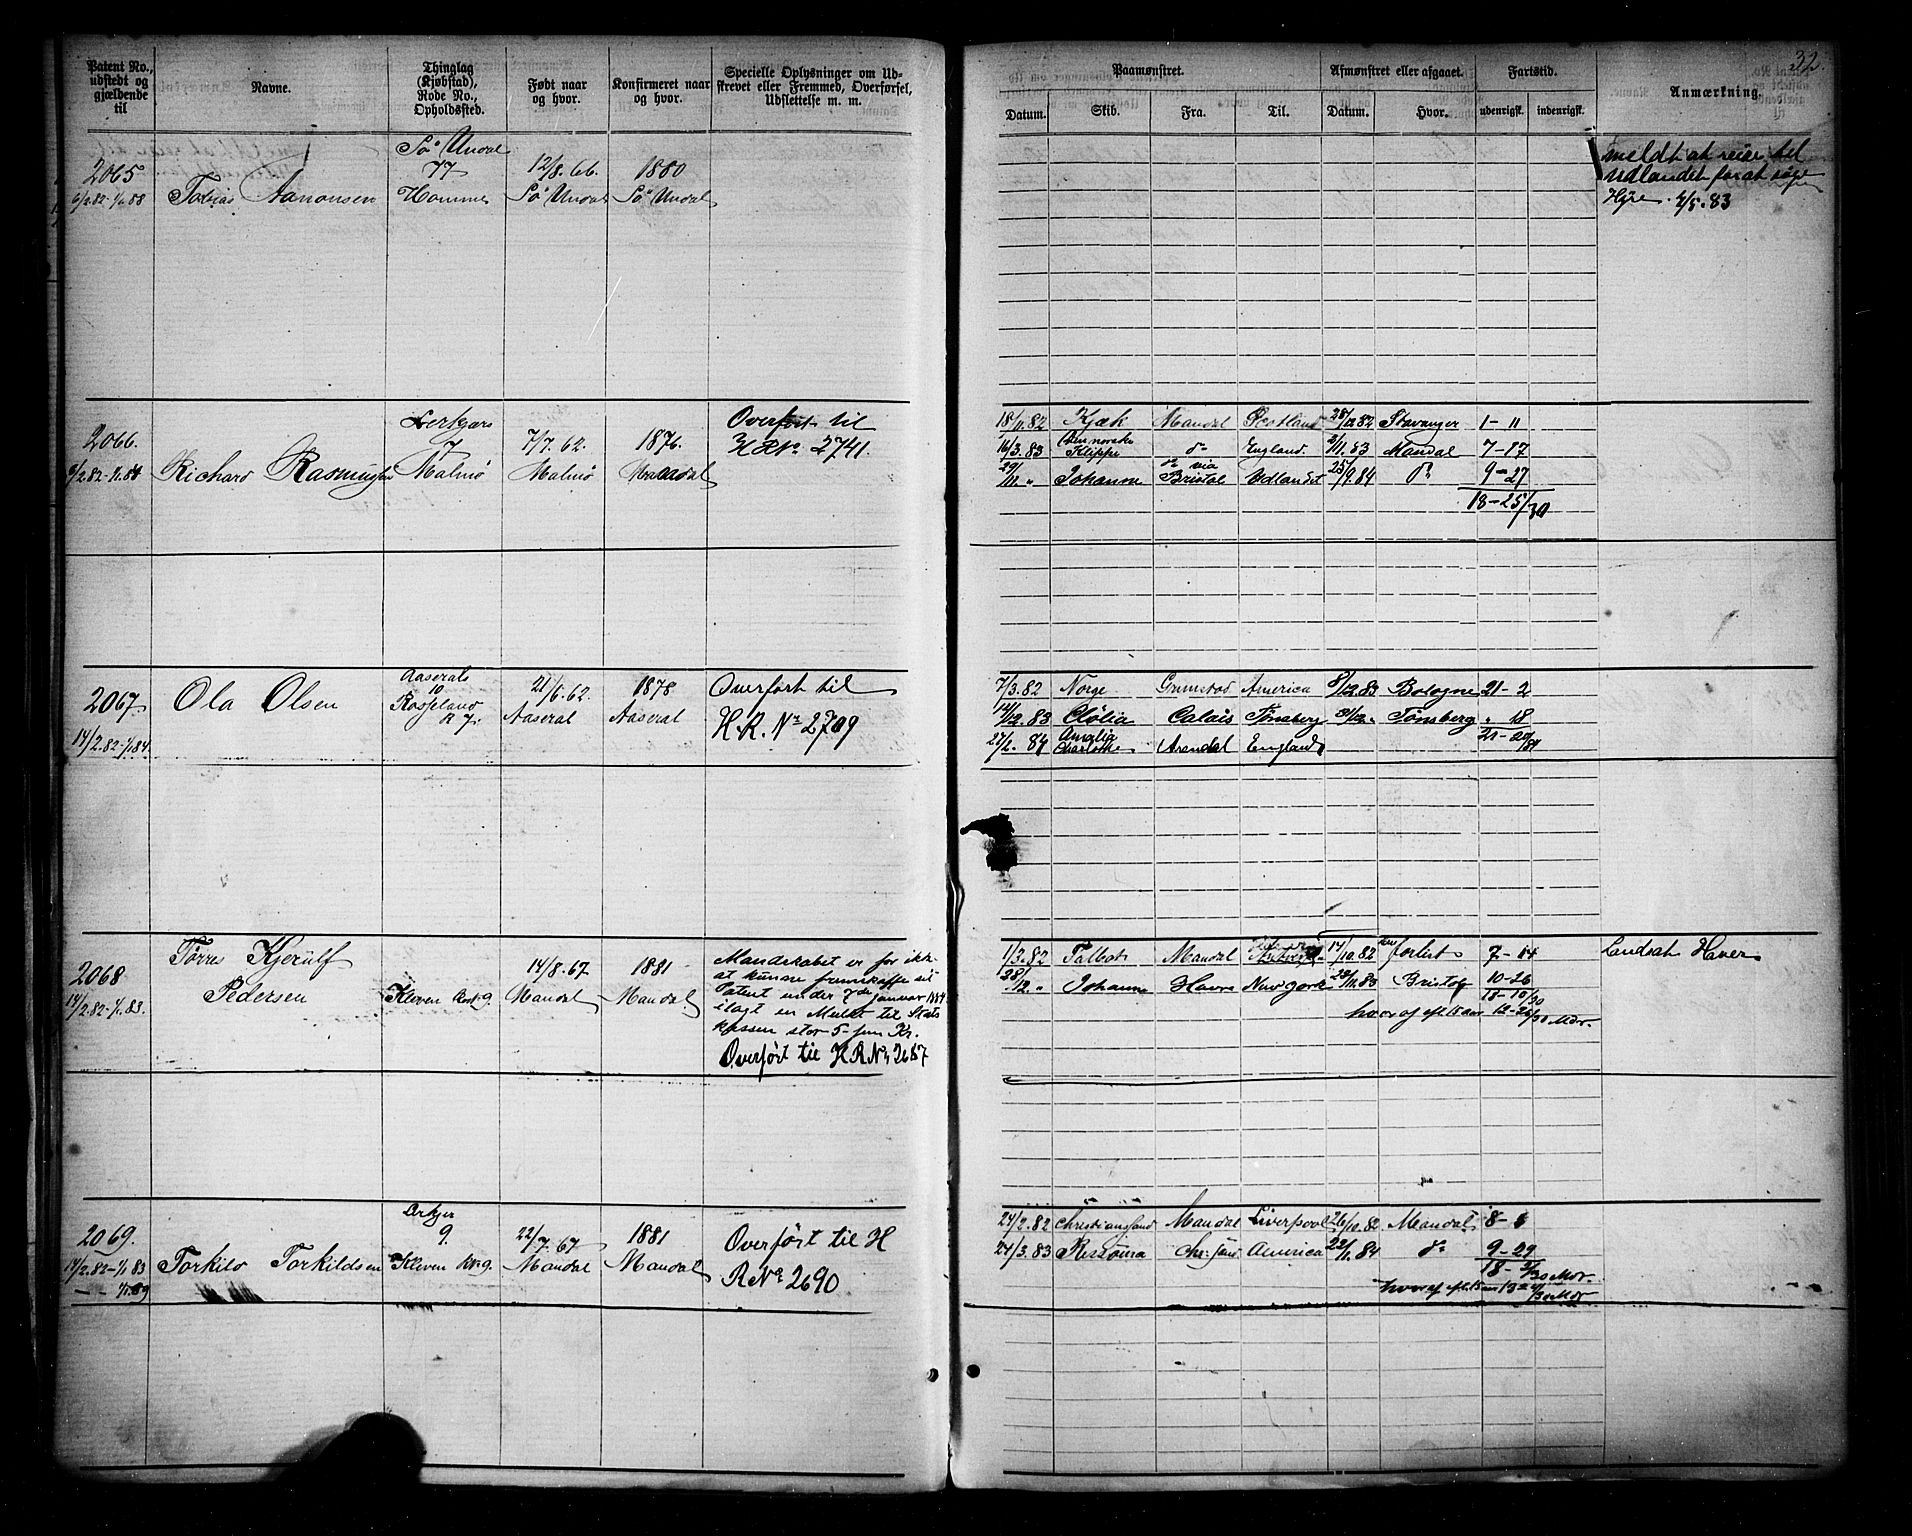 32
Patent No., udstedt og gjældende til
Navne.
Thinglag (Kjøbstad), Rode No., Opholdssted.
Født naar og hvor.
Konfirmeret naar og hvor.
Specielle Oplysninger om Udstrevet eller Fremmed, Overførsel, Udslettelse m. m.
Paamønstret.
Afmønstret eller afgaaet.
Fartstid.
Anmærkning.
Datum. Skib. Fra. Til. Datum. Hvor. udenrigsk. indenrigsk.
2065
6/2.82-1/1.88
Tobias Aanonsen
Sø Undal
77
Homme
12/8.66.
Sø Undal
1880
Sø Undal
meldt at reise til
Udlandet for at søge
Hyre. 4/5.83
2066.
6/2.82-1/1.84
Richard Rasmussen
7
Malmø
7/7.62.
Malmø
1876.
Overført til
H R No 2741.
18/11.82 Kjæk Mandal Scotland 28/12.82 Stavanger 1-11
16/3.83 Den norske Klippe do England. 3/11.83 Mandal 7-17
29/11. " Johanne do via Bristol Udlandet 25/9.84 do 9-27
18-25/30
2067
14/2.82-1/1.84.
Ola Olsen
Aaseral
10
Rosseland
R 7.
21/6.62.
Aaseral
1878
Aaseral
Overført til
H.R. No 2709
7/3.82 Norge Grimstad America 8/12.83 Bologne 21-2
14/12.83 Clølia Calais Tønsberg 31/12 " Tønsberg " 18
21-20/30
27/2.84 Amalia Charlotte Arendal England
2068
14/2.82-1/1.83.
Tørres Kjerulf
Pedersen
Kleven 9.
14/8.67
Mandal
1881
Mandal
Manderkabet er for ikke
at kunne fremskaffe sit
Patent under 7de Januar 1884
ilagt en Mulkt til Stats
kassen stor 5- fem Kr.
Overført til H R No 2687
1/3.82 Talbot Mandal 14/10.82 forlist 7-14
28/12. " Johanne Havre New York 28/11.83 Bristol 10-26
18-10/30
hvoraf eft 15 aar 12-26/30 Mdr.
2069.
14/2.82-1/1.83
— — 1/1.89
Torkild Torkildsen
9.
Kleven 9.
22/7.67
Mandal
1881
Mandal
Overført til H
R No 2690
24/2.82 Christianssand Mandal Liverpool 26/10.82 Mandal 8-
24/3.83 Chr.sand America 22/1.84 do 9-29
18- /30 Mdr.
hvoraf eft 15 aar 13- /30 Mdr